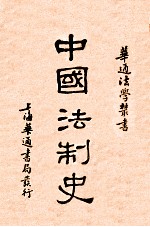 華通法學叢書
中國法制史
上海華通書局發行